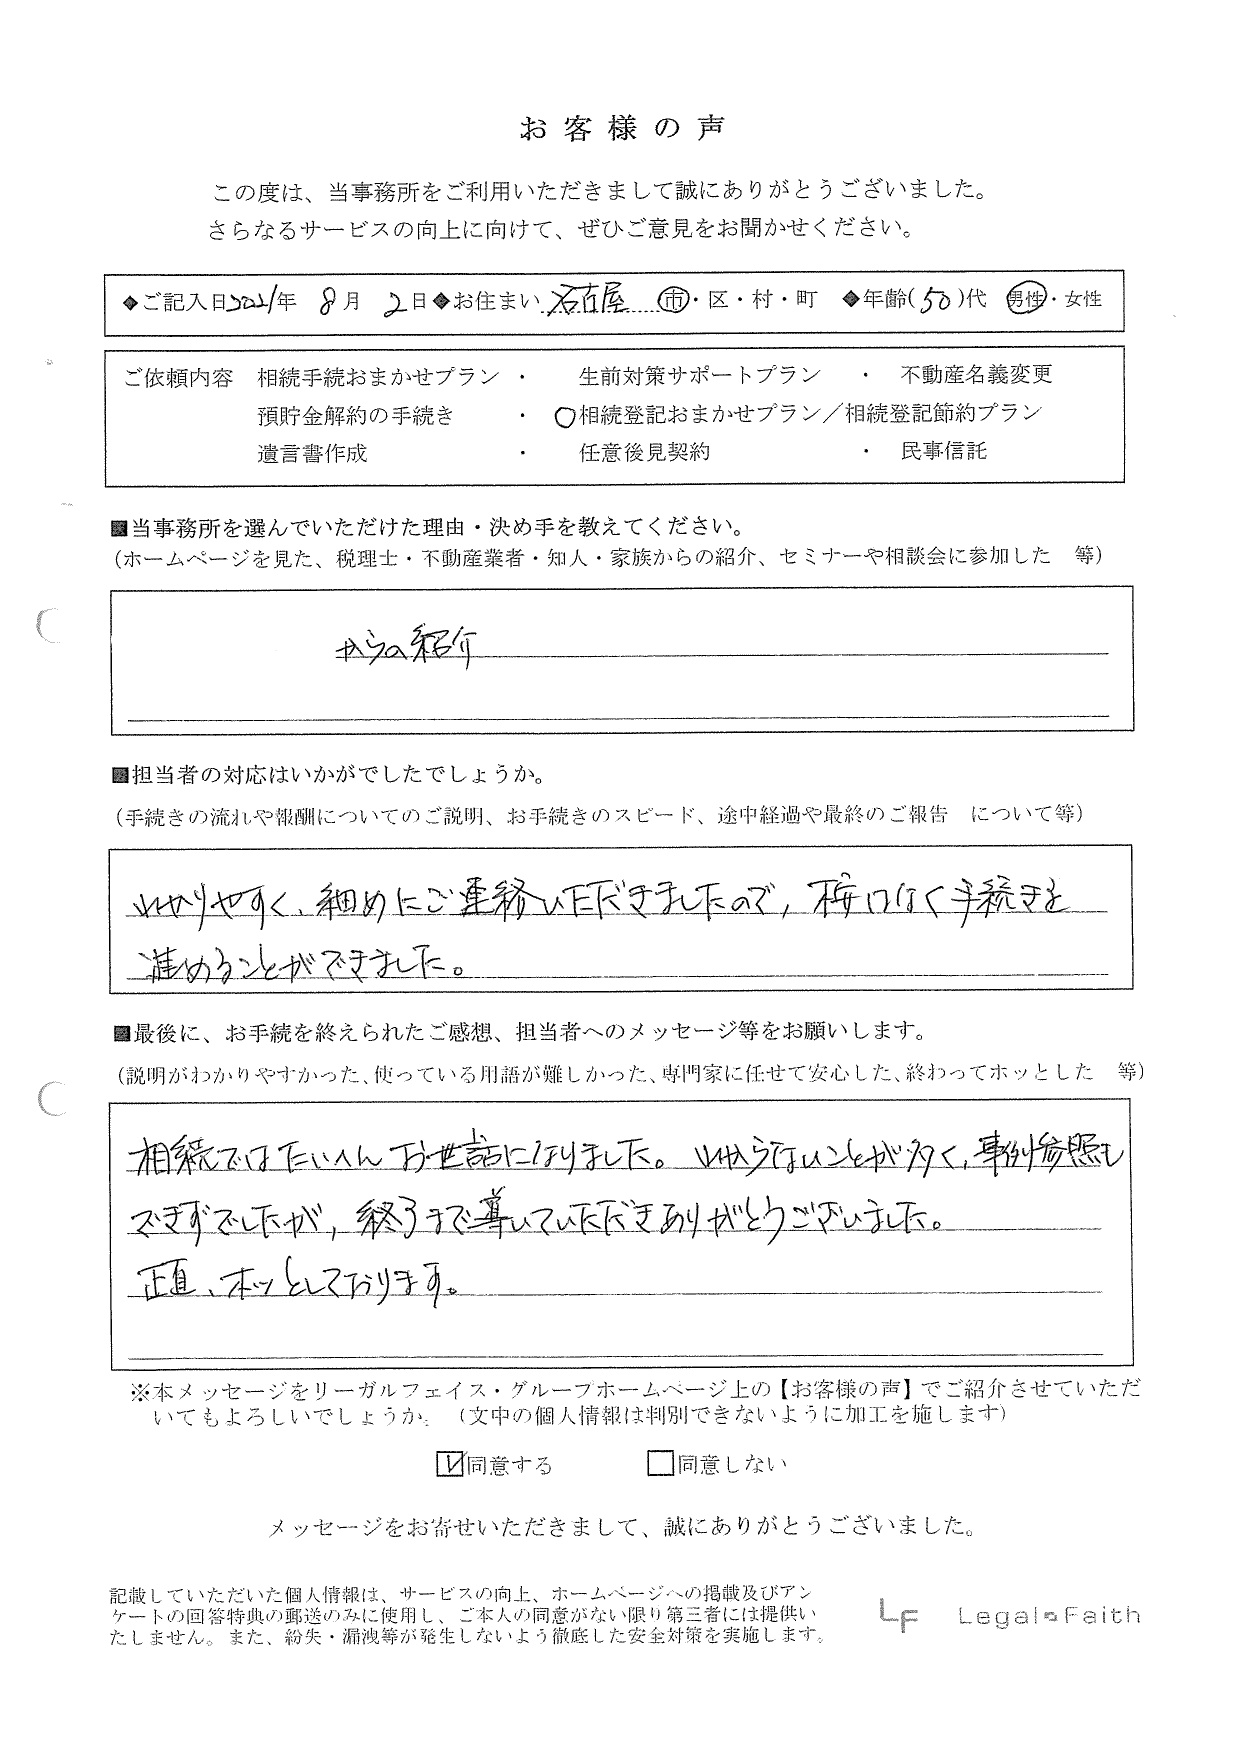 お客様の声
この度は、当事務所をご利用いただきまして誠にありがとうございました。
さらなるサービスの向上に向けて、ぜひご意見をお聞かせください。
◆ご記入日2021年 8月 2日◆お住まい 名古屋 市・区・村・町 ◆年齢(50)代 男性・女性
ご依頼内容 相続手続おまかせプラン ・ 生前対策サポートプラン ・ 不動産名義変更
預貯金解約の手続き ・ ○相続登記おまかせプラン／相続登記節約プラン
遺言書作成 ・ 任意後見契約 ・ 民事信託
■当事務所を選んでいただけた理由・決め手を教えてください。
（ホームページを見た、税理士・不動産業者・知人・家族からの紹介、セミナーや相談会に参加した 等）
からの紹介
■担当者の対応はいかがでしたでしょうか。
（手続きの流れや報酬についてのご説明、お手続きのスピード、途中経過や最終のご報告 について等）
わかりやすく、細めにご連絡いただきましたので, 滞りなく手続きを
進めることができました。
■最後に、お手続を終えられたご感想、担当者へのメッセージ等をお願いします。
（説明がわかりやすかった、使っている用語が難しかった、専門家に任せて安心した、終わってホッとした 等）
相続ではたいへんお世話になりました。わからないことが多く, 事例参照も
できずでしたが, 終了まで導いていただきありがとうございました。
正直、ホッとしております。
※本メッセージをリーガルフェイス・グループホームページ上の【お客様の声】でご紹介させていただ
いてもよろしいでしょうか。（文中の個人情報は判別できないように加工を施します）
☑同意する □同意しない
メッセージをお寄せいただきまして、誠にありがとうございました。
記載していただいた個人情報は、サービスの向上、ホームページへの掲載及びアン
ケートの回答特典の郵送のみに使用し、ご本人の同意がない限り第三者には提供い
たしません。また、紛失・漏洩等が発生しないよう徹底した安全対策を実施します。
LF Legal Faith